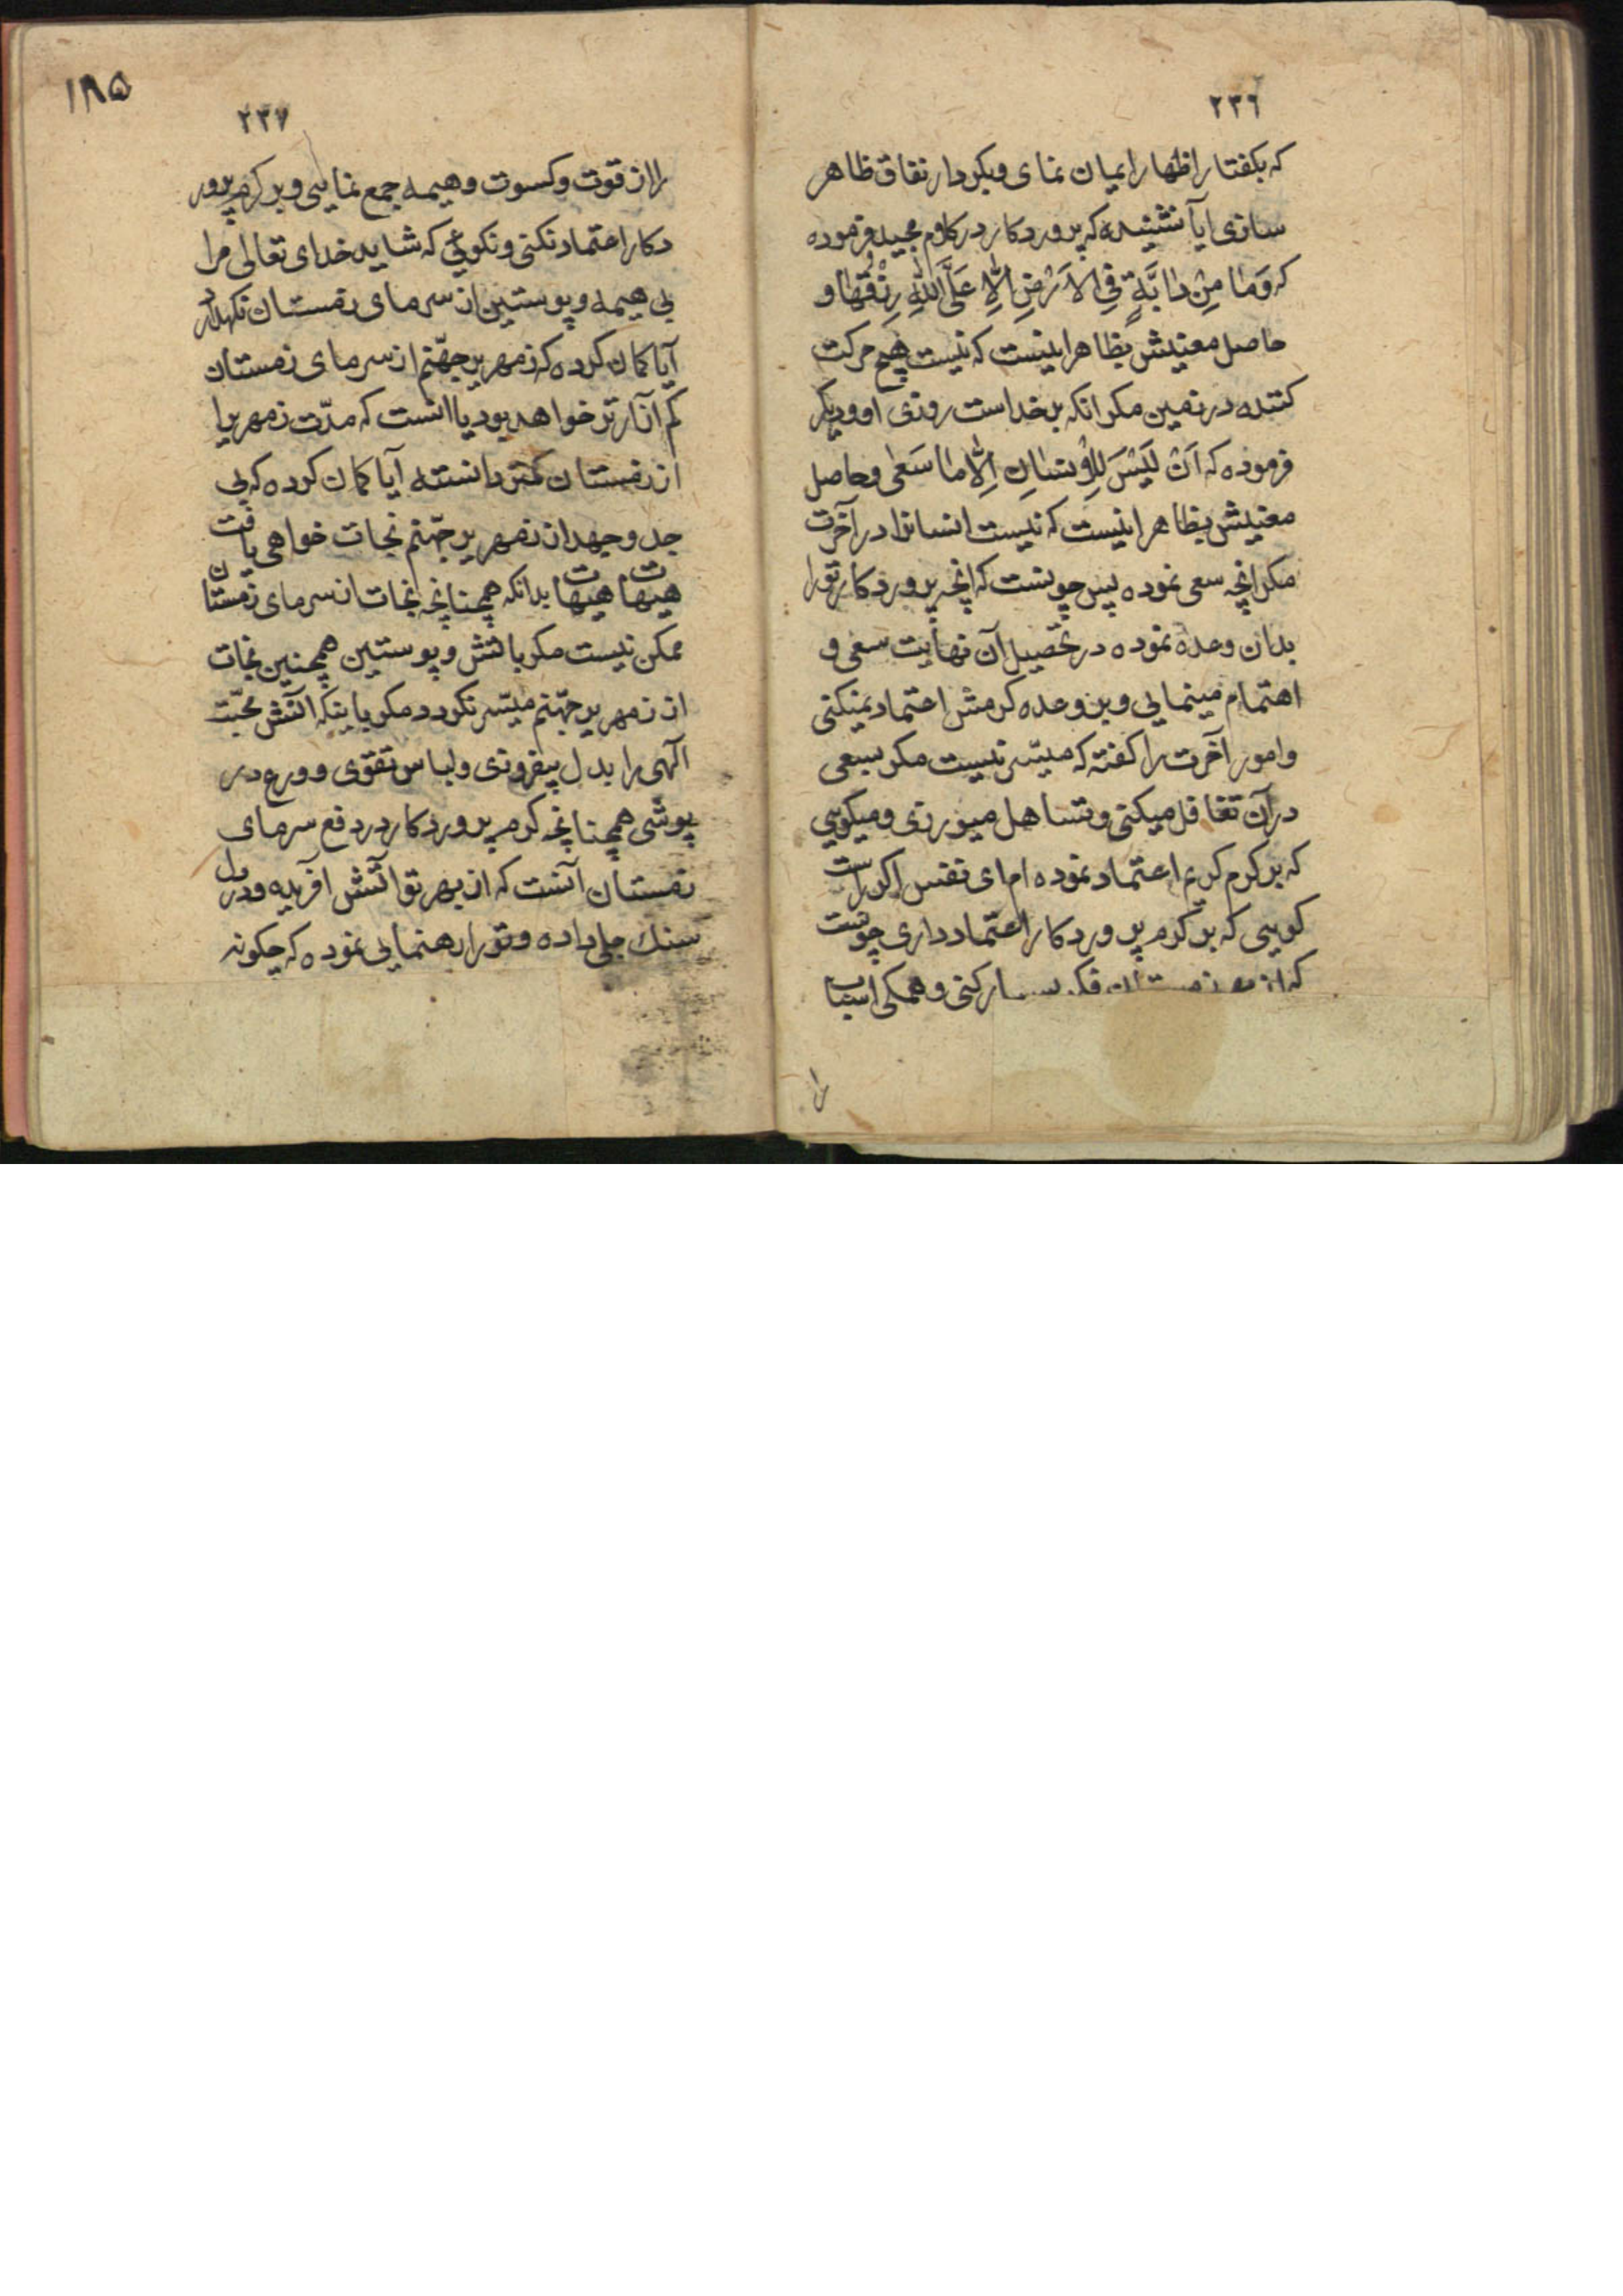 ٢٣٦
که بکفتار اظهار ایمان نمای و بکردار نفاق ظاهر
سازی ایا نشنیده که پروردکار در کلام مجید فرموده
که وَمَا مِنْ دٰابَّةٍ فِی الاَرْضِ اِلّٰا عَلَی اللّٰهِ رِزْقُهٰا و
حاصل معنیش بظاهر اینست که نیست هیچ حرکت
کننده در زمین مکر انکه بر خداست روزی او و دیکر
فرموده که اَنْ لَیْسَ لِلْاِنْسٰانِ اِلّٰا مٰا سَعٰی و حاصل
معنیش بظاهر اینست که نیست انسانرا در آخرت
مکر انچه سعی نموده پس چونست که انچه پروردکار تو را
بدان وعده نموده در تحصیل آن نهایت سعی و
اهتمام مینمایی و بر وعده کرمش اعتماد نمیکنی
و امور آخرت را کفته که میسّر نیست مکر بسعی
در آن تغافل میکنی و تساهل میورزی و میکویی
که بر کرم کریم اعتماد نموده ام ای نفس اکر راست
کویی که بر کرم پروردکار اعتماد داری چونست
که از زمستان فکر بسیار کنی و همکی اسباب
را
١٨٥
٢٣٧
را از قوت و کسوت و هیمه جمع نمایی و بر کرم پرور
دکار اعتماد نکنی و نکویی که شاید خدای تعالی مرا
بی هیمه و پوستین از سرمای زمستان نکهدارد
آیا کمان کرده که زمهریر جهّنم از سرمای زمستان
کم آزارتر خواهد بود یا انست که مدّت زمهریر را
از زمستان کمتر دانسته آیا کمان کرده که بی
جد و جهد از زمهریر جهّنم نجات خواهی یافت
هیهات هیهات بدانکه همچنانچه نجات از سرمای زمستان
ممکن نیست مکر باتش و پوستین همچنین نجات
از زمهریر جهّنم میسّر نکردد مکر باینکه اتش محبّت
الهی را بدل بیفروزی و لباس تقوی و ورع در
پوشی همچنانچه کرم پروردکار در دفع سرمای
زمستان آنست که از بهر تو اتش افریده و در دل
سنك جای داده و تو را رهنمایی نموده که چکونه